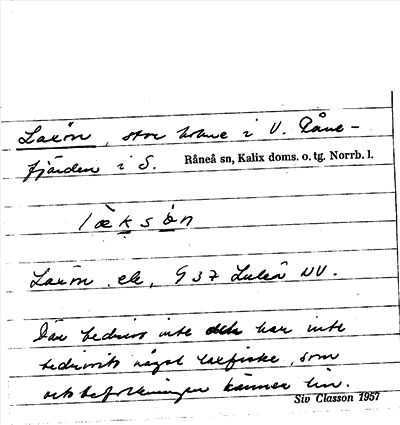 Laxön, stor holme i V. Råne-
fjärden i S. Råneå sn, Kalix doms. o. tg. Norrb. l.
læksøn
Laxön, ek, 937 Luleå NV.
Där bedrivs inte eller har inte
bedrivits något laxfiske, som
ortsbefolkningen känner till.
Siv Classon 1957